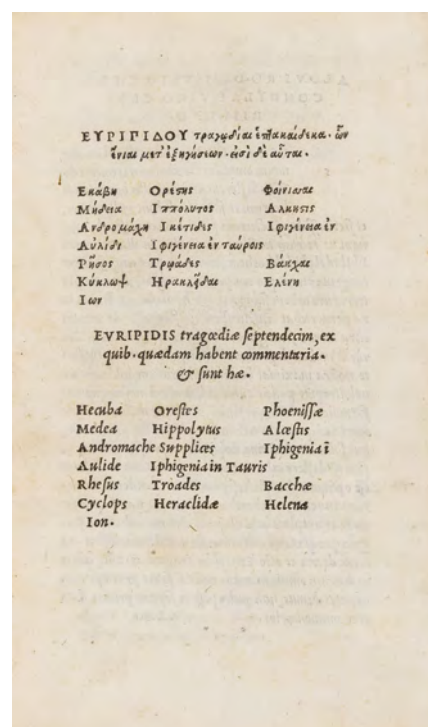 ΕΥΡΙΠΙΔΟΥ τραγῳδίαι ἑπτακαίδεκα· ὧν
ἔνιαι μετ' ἐξηγήσεων· εἰσὶ δὲ αὗται·
Εκάβη Ορέστης Φοίνισσαι
Μήδεια Ιππόλυτος Αλκηστις
Ανδρομάχη Ικέτιδες Ιφιγένεια ἐν
Αὐλίδι Ιφιγένεια ἐν ταύροις
Ρῆσος Τρῳάδες Βάκχαι
Κύκλωψ Ηρακλεῖδαι Ελένη
Ιων
EVRIPIDIS tragœdiæ septendecim, ex
quib. quædam habent commentaria.
& sunt hæ.
Hecuba Orestes Phoenissæ
Medea Hippolytus Alcestis
Andromache Supplices Iphigenia ĩ
Aulide Iphigenia in Tauris
Rhesus Troades Bacchæ
Cyclops Heraclidæ Helena
Ion.